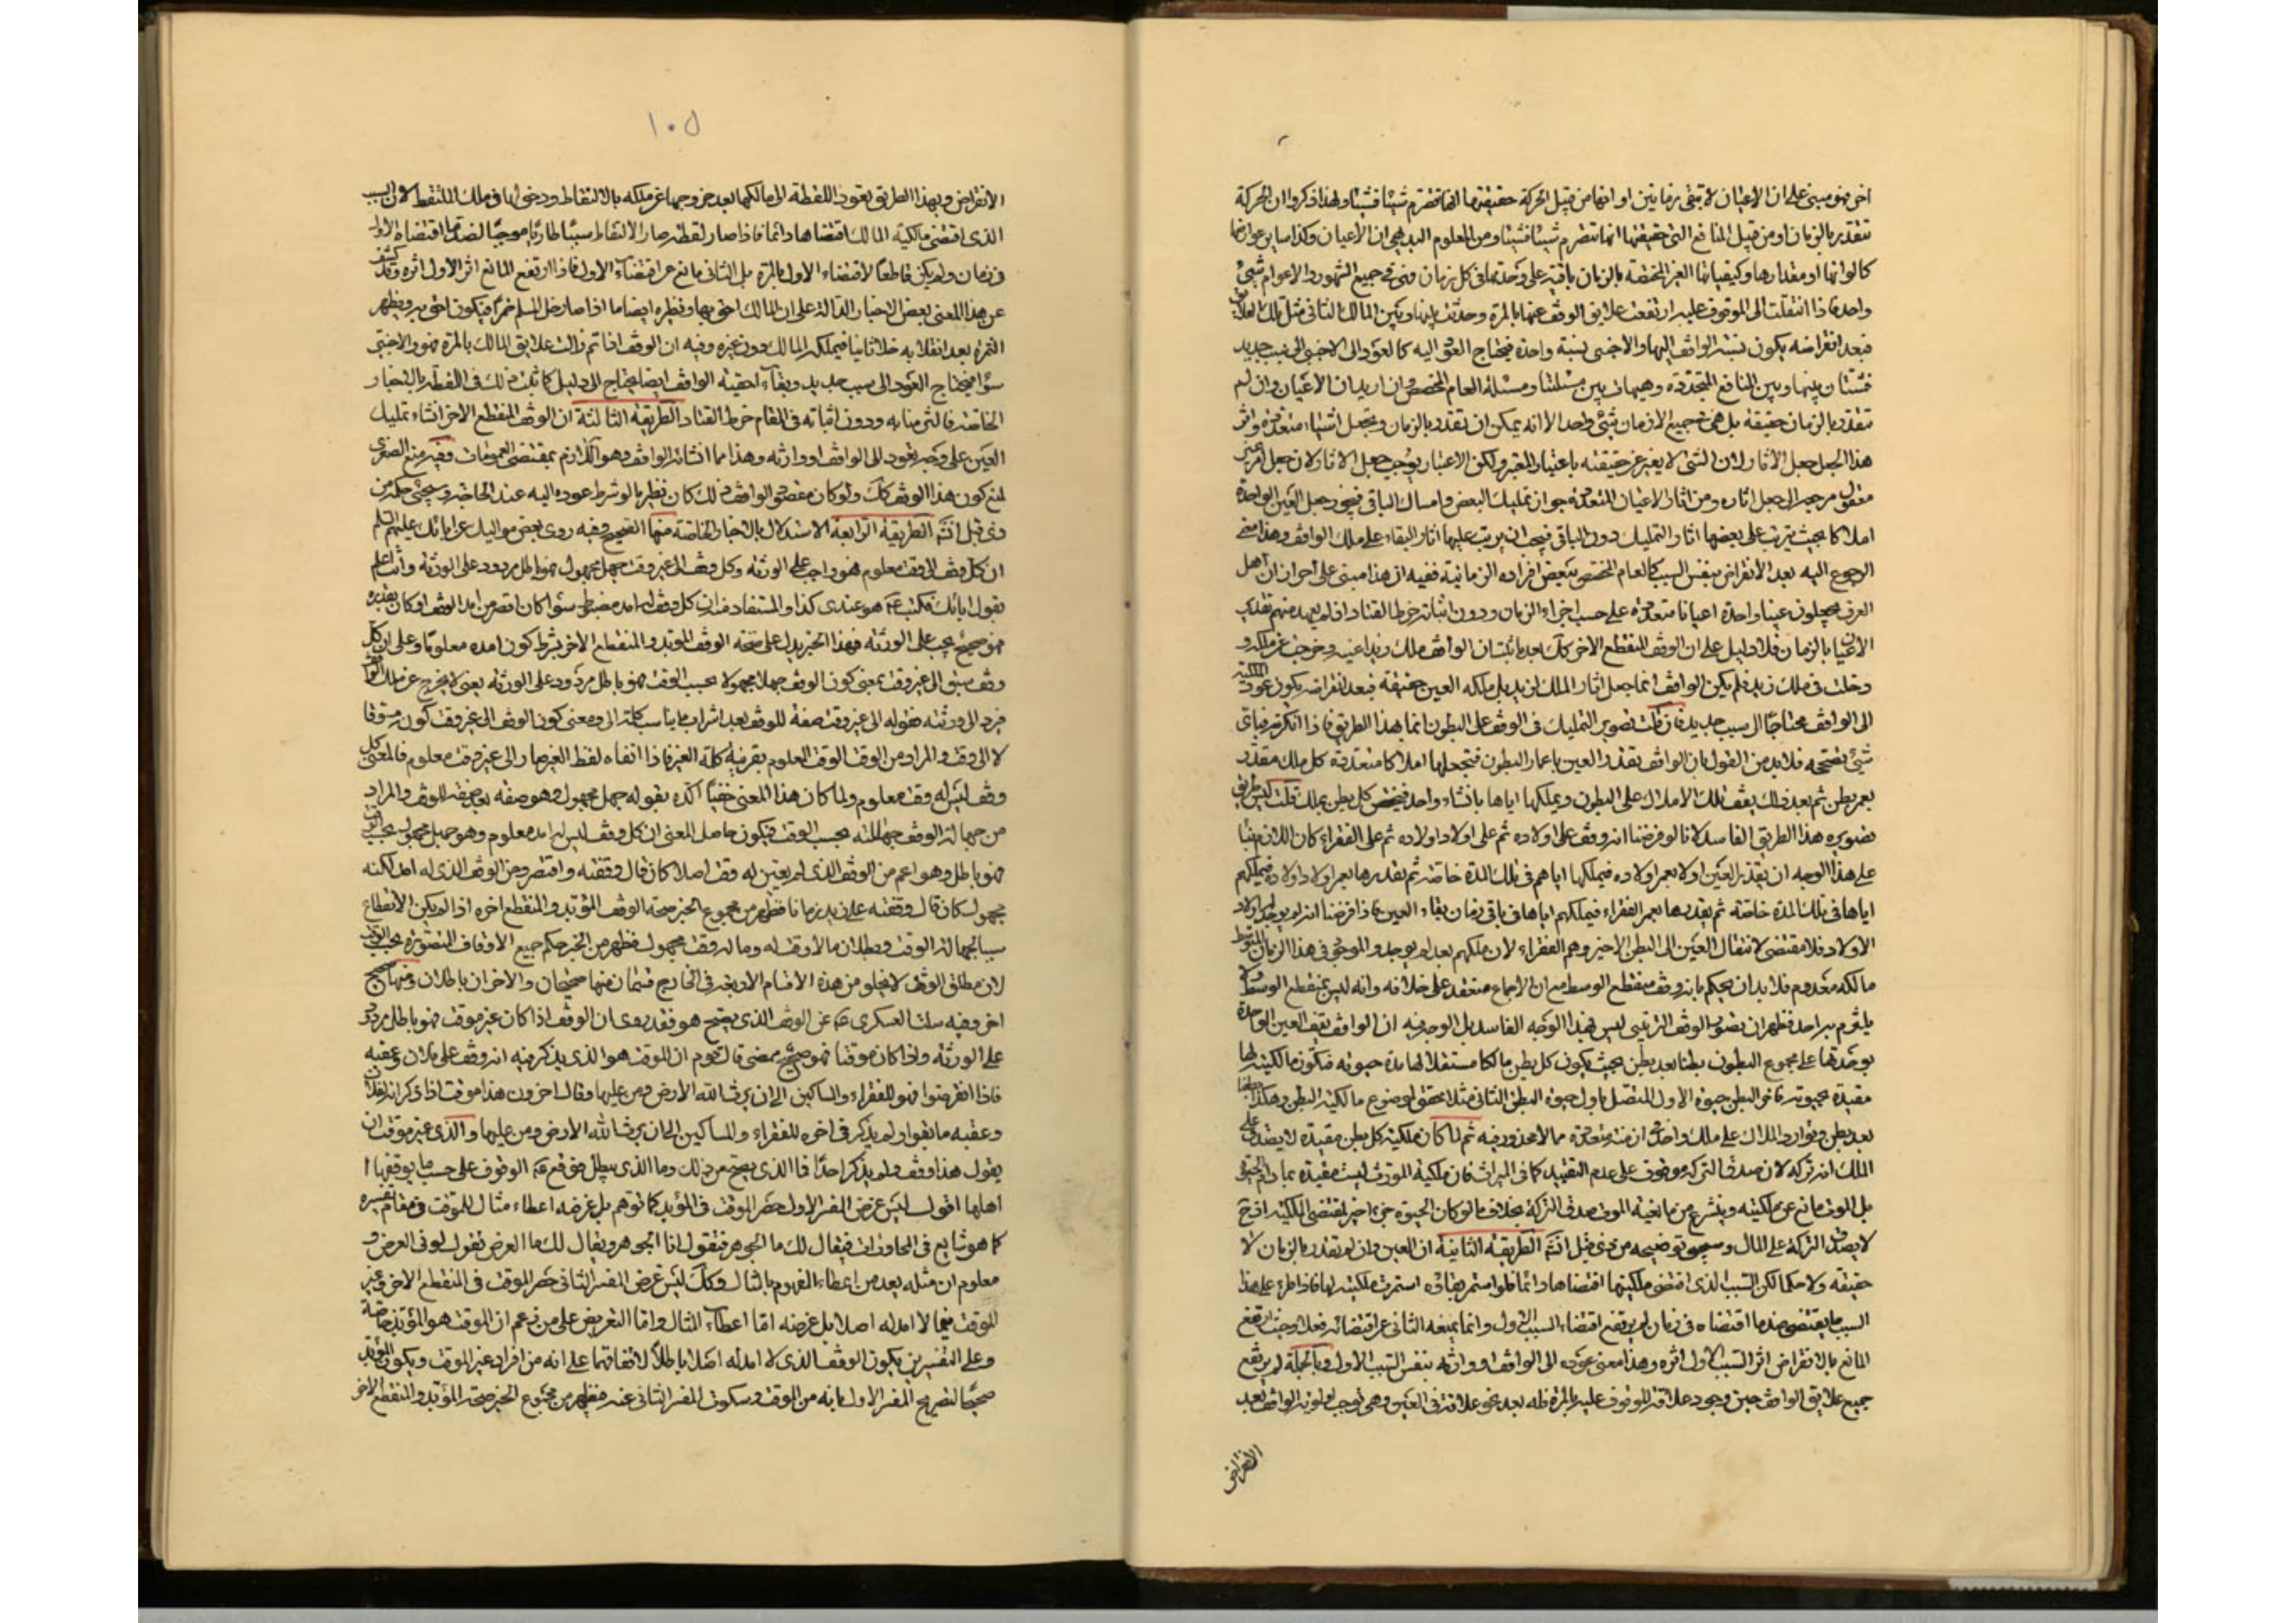 اخر فهو مبنى على ان الاعيان لا تبقى زمانين او انها من قبيل الحركة حقيقتها انها تنصرم شيئا فشيئا ولهذا ذكروا ان الحركة
تتقدر بالزمان او من قبيل المنافع التى حقيقتها انها تنصرم شيئا فشيئا ومن المعلوم البديهى ان الاعيان وكذا ساير عوارضها
كالوانها او مقدارها وكيفياتها الغير المختصة بالزمان باقية على وحدتها فى كل زمان فهى فى جميع الشهور والاعوام شئ
واحد فاذا انتقلت الى الموقوف عليه ارتفعت علايق الوقف عنها بالمرة وحدثت بينها وبين المالك الثانى مثل تلك العلايق
فبعد انقراضه يكون نسبة الواقف اليها والاجنبى نسبة واحدة فيحتاج العود اليه كالعود الى الاجنبى الى سبب جديد
فشتان بينها وبين المنافع المتجددة وهيهات بين مسئلتنا ومسئلة العام المخصص وان اريد ان الاعيان وان لم
تتقدر بالزمان حقيقة بل هى فى جميع الازمان شئ واحد الا انه يمكن ان تقدر بالزمان وتجعل اشياء متعددة واثر
هذا الجعل جعل الاثار لان الشئ لا يغير عن حقيقته باعتبار المعتبر ولكن الاعتبار يوجب جعل الاثار لان جعل امر غير
معقول مرجعه الى جعل اثاره ومن اثار الاعيان المتعددة جواز تمليك البعض وامساك الباقى فيجوز جعل العين الواحدة
املاكا بحيث يترتب على بعضها اثار التمليك دون الباقى فيجب ان يرتب عليها اثار البقاء على ملك الواقف وهذا معنى
الرجوع اليه بعد الانقراض بنفس السبب كالعام المخصص ببعض افراده الزمانية ففيه ان هذا مبنى على احراز ان اهل
العرف يجعلون عينا واحدة اعيانا متعددة على حسب اجزاء الزمان ودون اثباته خرط القتاد اذ لم يعهد منهم تقدير
الاعيان بالزمان فلا دليل على ان الوقف المنقطع الاخر كك بعد ما ثبت ان الواقف ملك زيدا عينه وخرجت عن ملكه و
دخلت فى ملك زيد فلم يكن الواقف انما جعل اثار الملك لزيد بل ملكه العين حقيقة فبعد انقراضه يكون عود الملكية
الى الواقف محتاجا الى سبب جديد فان قلت تصوير التمليك فى الوقف على البطون انما بهذا الطريق فاذا انكرته فباى
شئ تصححه فلا بد من القول بان الواقف يقدر العين باعمار البطون فتجعلها املاكا متعددة كل ملك مقدر
بعمر بطن ثم بعد ذلك يقف تلك الاملاك على البطون ويملكها اياها بانشاء واحد فيختص كل بطن بملك قلت ليس طريق
تصويره هذا الطريق الفاسد لانا لو فرضنا انه وقف على اولاده ثم على اولاد اولاده ثم على الفقراء كان اللازم بناء
على هذا الوجه ان يقدر العين اولا بعمر اولاده فيملكها اياهم فى تلك المدة خاصة ثم يقدرها بعمر اولاد اولاده فيملكهم
اياها فى تلك المدة خاصة ثم يقدرها بعمر الفقراء فيملكهم اياها فى باقى زمان بقاء العين فاذا فرضنا انه لم يوجد اولاد
الاولاد فلا مقتضى لانتقال العين الى البطن الاخير وهم الفقراء لان ملكهم بعد لم يوجد والموجود فى هذا الزمان المتوسط
مالكه معدوم فلا بد ان يحكم بانه وقف منقطع الوسط مع ان الاجماع منعقد على خلافه وانه ليس بمنقطع الوسط ولا
يلتزم به احد فظهر ان تصوير الوقف الترتيبى ليس بهذا الوجه الفاسد بل الوجه فيه ان الواقف يقف العين الواحدة
بوحدتها على مجموع البطون بطنا بعد بطن بحيث يكون كل بطن مالكا مستقلا لها مدة حيوته فتكون مالكيته لها
مقيدة بحيوته فاخر البطن حيوة الاول المتصل باول حيوة البطن الثانى مثلا يحقق موضوع مالكية البطن وهكذا بطنا
بعد بطن وتوارد الملاك على ملك واحد فى ازمنة متعددة مما لا محذور فيه ثم لما كان ملكية كل بطن مقيدة لا يصدق على
الملك انه تركه لان صدق التركة موقوف على عدم التقييد كما فى الميراث فان ملكية المورث ليست مقيدة بما دام الحيوة
بل الموت مانع عن ملكيته وينتزع من مانعية الموت صدق التركة بخلاف ما لو كان الحيوة جزء اخير لمقتضى الملكية اذ ح
لا يصدق التركة على المال وسيجئ توضيحه من ذى قبل انشاء الله الطريقة الثانية ان العين وان لم تقدر بالزمان لا
حقيقة ولا حكما لكن السبب الذى اقتضى ملكيتها اقتضاها دائما فلو استمر بقائه استمرت ملكيته لها فاذا طرء على هذا
السبب ما يقتضى ضد ما اقتضاه فى زمان لم يرتفع اقتضاء السبب الاول وانما يمنعه الثانى عن اقتضائه فعلا وحيث ارتفع
المانع بالانقراض اثر السبب الاول اثره وهذا معنى عوده الى الواقف او وارثه بنفس السبب الاول وبالجملة لم يرتفع
جميع علايق الواقف حين وجود علاقة الموقوف عليه بالمرة فله بعد نحو علاقة فى العين وهى توجب اولوية الواقف بعد
الانقراض
١٠٥
الانقراض وبهذا الطريق تعود اللقطة الى مالكها بعد خروجها عن ملكه بالالتقاط ودخولها فى ملك الملتقط لان السبب
الذى اقتضى مالكية المالك اقتضاها دائما فاذا صار لقطة صار الالتقاط سببا طاريا موجبا لضد ما اقتضاه الاول
فى زمان ولم يكن قاطعا لاقتضاء الاول بالمرة بل الثانى مانع عن اقتضاء الاول فاذا ارتفع المانع اثر الاول اثره وقد كشف
عن هذا المعنى بعض الاخبار الدالة على ان المالك احق بها ونظيره ايضا ما اذا صار خل المسلم خمرا فيكون احق به ويظهر
الثمرة بعد انقلابه خلا ثانيا فيملكه المالك دون غيره وفيه ان الوقف اذا تم زالت علايق المالك بالمرة فهو والاجنبى
سواء فيحتاج العود الى سبب جديد وبقاء احقية الواقف ايضا يحتاج الى دليل كما ثبت ذلك فى اللقطة بالاخبار
الخاصة فالتزمنا به ودون اثباته فى المقام خرط القتاد الطريقة الثالثة ان الوقف المنقطع الاخر انشاء تمليك
العين على وجه يعود الى الواقف او وارثه وهذا مما انشائه الواقف وهو اللازم بمقتضى العمومات وفيه منع الصغرى
لمنع كون هذا الوقف كك ولو كان مقصود الواقف ذلك كان نظير ما لو شرط عوده اليه عند الحاجة وسيجئ حكمه من
ذى قبل انشاء الله الطريقة الرابعة الاستدلال بالاخبار الخاصة منها الصحيح وفيه روى بعض مواليك عن ابائك عليهم السلم
ان كل وقف الى وقت معلوم فهو واجب على الورثة وكل وقف الى غير وقت جهل مجهول فهو باطل مردود على الورثة وانت اعلم
بقول ابائك فكتب ع هو عندى كذا والمستفاد منه ان كل وقف له امد مضبوط سواء كان اقصر من امد الوقف او كان بقدره
فهو صحيح يجب على الورثة فهذا الخبر يدل على صحة الوقف المؤبد والمنقطع الاخر بشرط كون امده معلوما وعلى ان كل
وقف سيق الى غير وقت بمعنى كون الوقف جهلا مجهولا بحسب الوقت فهو باطل مردود على الورثة يعنى لا يخرج عن ملك الواقف
فيرد الى ورثته فقوله الى غير وقت صفة للوقف بعد اشراب ما يناسب كلمة الى ومعنى كون الوقف الى غير وقت كونه مسوقا
لا الى وقت والمراد من الوقت الوقت المعلوم بقرينة كلمة الغير فاذا انفاه لفظ الغير صار الى غير وقت معلوم فالمعنى كل
وقف ليس له وقت معلوم ولما كان هذا المعنى خفيا اكده بقوله جهل مجهول وهو صفة بعد صفة للوقف والمراد
من جهالة الوقف جهالته بحسب الوقت فيكون حاصل المعنى ان كل وقف ليس له امد معلوم وهو جهل مجهول بحسب الوقت
فهو باطل وهو اعم من الوقف الذى لم يعين له وقت اصلا كان قال وقفته واقتصر ومن الوقف الذى له امد لكنه
مجهول كان قال وقفته على زيد زمانا فظهر من مجموع الخبر صحة الوقف المؤبد والمنقطع اخره اذا لم يكن الانقطاع
سببا لجهالة الوقت وبطلان ما لا وقت له وما له وقت مجهول فظهر من الخبر حكم جميع الاوقاف المتصورة بحسب الوقت
لان مطلق الوقف لا يخلو من هذه الاقسام الاربعة فى الخارج قسمان منها صحيحان والاخران باطلان ومنها صحيح
اخر وفيه سئلت العسكرى ع عن الوقف الذى يصح هو فقد روى ان الوقف اذا كان غير موقت فهو باطل مردود
على الورثة واذا كان موقتا فهو صحيح ممضى قال قوم ان الموقت هو الذى يذكر فيه انه وقف على فلان وعقبه
فاذا انقرضوا فهو للفقراء والمساكين الى ان يرث الله الارض ومن عليها وقال اخرون هذا موقت اذا ذكر انه لفلان
وعقبه ما بقوا ولم يذكر فى اخره للفقراء والمساكين الى ان يرث الله الارض ومن عليها والذى غير موقت ان
يقول هذا وقف ولم يذكر احدا فما الذى يصح من ذلك وما الذى يبطل فوقع ع الوقوف على حسب ما يوقفها
اهلها اقول ليس غرض المفسر الاول حصر الموقت فى المؤبد كما توهم بل غرضه اعطاء مثال للموقت فى مقام تفسيره
كما هو شايع فى المحاورات فيقال لك ما الجوهر فتقول انا الجوهر ويقال لك ما العرض تقول لونى العرض و
معلوم ان مثله يعد من اعطاء المفهوم بالمثال وكك ليس غرض المفسر الثانى حصر الموقت فى المنقطع الاخر وغير
الموقت فيما لا امد له اصلا بل غرضه اما اعطاء المثال واما التعريض على من زعم ان الموقت هو المؤبد خاصة
وعلى التفسيرين يكون الوقف الذى لا امد له اصلا باطلا لاتفاقهما على انه من افراد غير الموقت ويكون المؤبد
صحيحا لتصريح المفسر الاول بانه من الموقت وسكوت المفسر الثانى عنه فظهر من مجموع الخبر صحة المؤبد والمنقطع الاخر